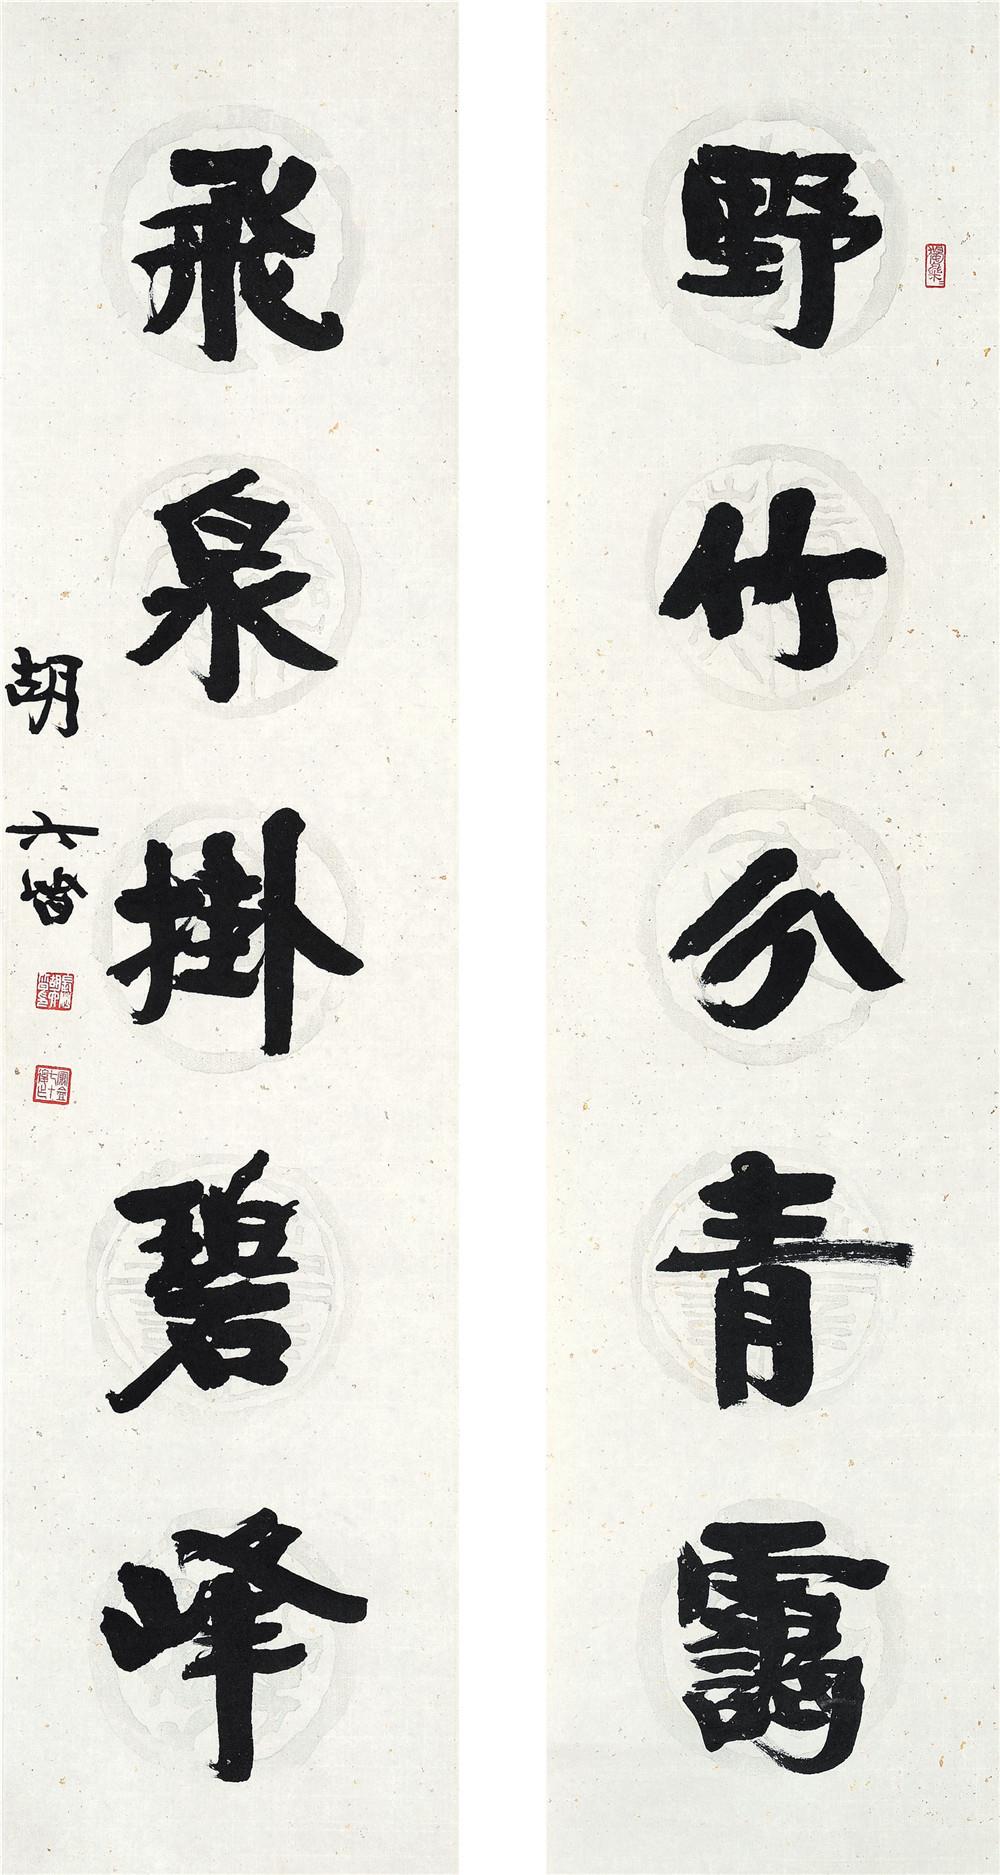 野竹分青靄
飛泉掛碧峰
胡六皆